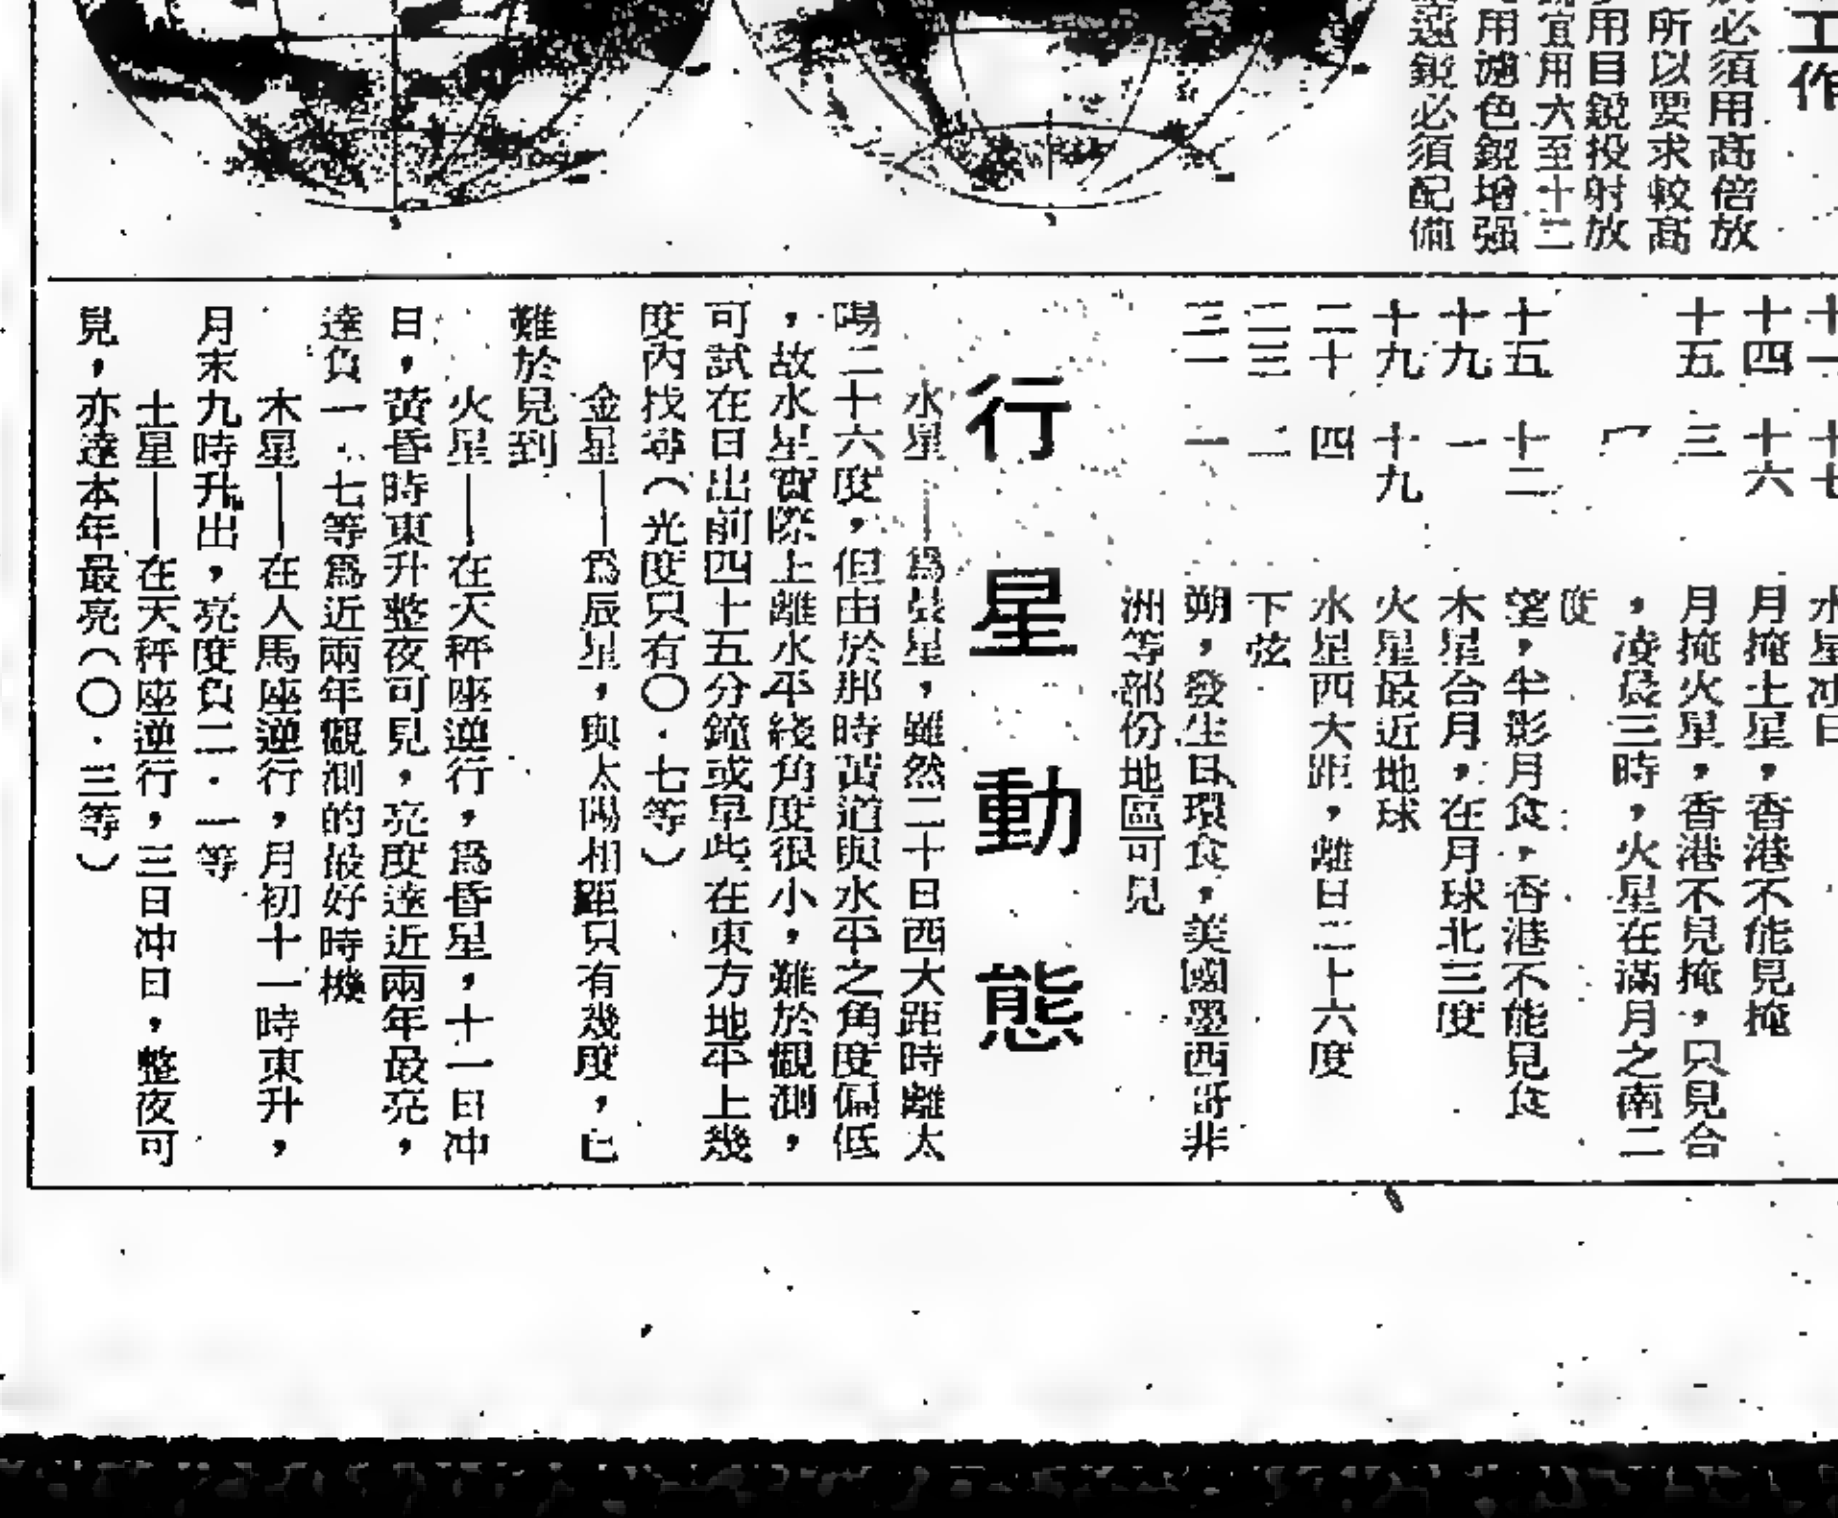 工作
必須用高倍放
所以要求較高
用目鏡投射放
宜用六至十二
用濾色鏡增强
遠鏡必須配備
十七
水星冲日
十四 十六 月掩土星，香港不能見掩
十五 三 月掩火星，香港不見掩，只見合
，凌晨三時，火星在滿月之南二
度
十五 十二 望，半影月食，香港不能見食
十九 一 木星合月，在月球北三度
十九 十九 火星最近地球
二十 四 水星西大距，離日二十六度
二三 二 下弦
三一 一 朔，發生日環食，美國墨西哥非
洲等部份地區可見
行星動態
水星——為晨星，雖然二十日西大距時離太
陽二十六度，但由於那時黃道與水平之角度偏低
，故水星實際上離水平綫角度很小，難於觀測，
可試在日出前四十五分鐘或早些在東方地平上幾
度內找尋（光度只有〇·七等）
金星——為辰星，與太陽相距只有幾度，已
難於見到
火星——在天秤座逆行，為昏星，十一日冲
日，黃昏時東升整夜可見，亮度達近兩年最亮，
達負一·七等為近兩年觀測的最好時機
木星——在人馬座逆行，月初十一時東升，
月末九時升出，亮度負二·一等
土星——在天秤座逆行，三日冲日，整夜可
見，亦達本年最亮（〇·三等）